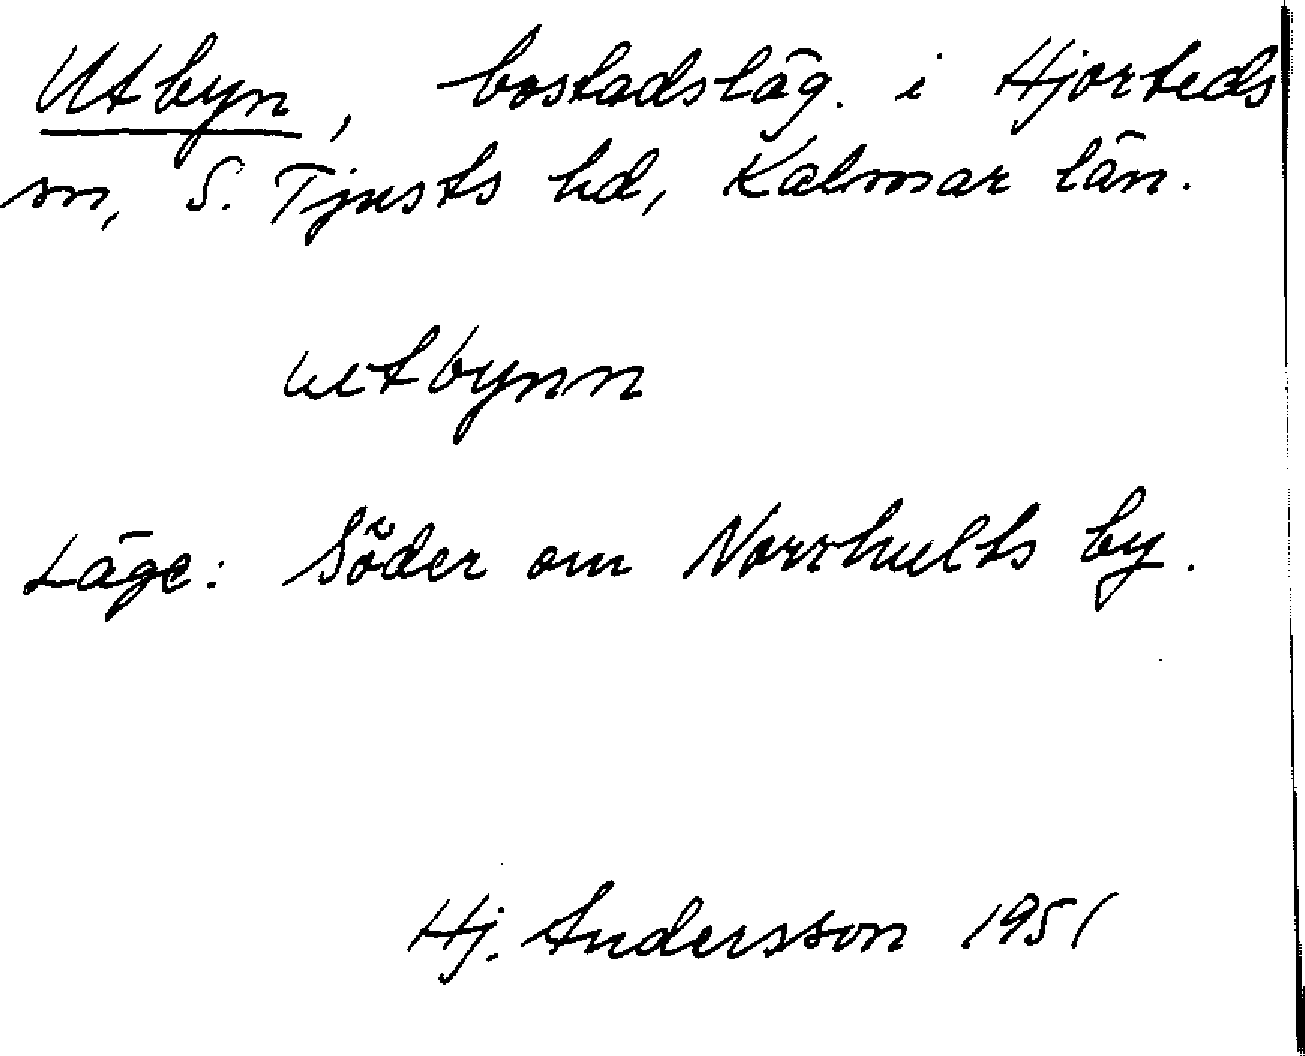 Utbyn, bostadsläg. i Hjorteds
sn, S. Tjusts hd, Kalmar län.
utbynn
Läge: Söder om Norrhults by.
Hj. Andersson 1951